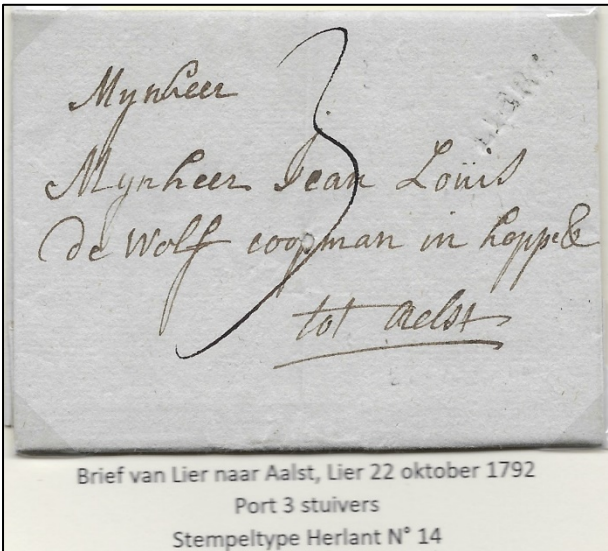 Mynheer
3
Mynheer Jean Louis
de Wolf coopman in hoppe &
tot Aelst
Brief van Lier naar Aalst, Lier 22 oktober 1792
Port 3 stuivers
Stempeltype Herlant N° 14